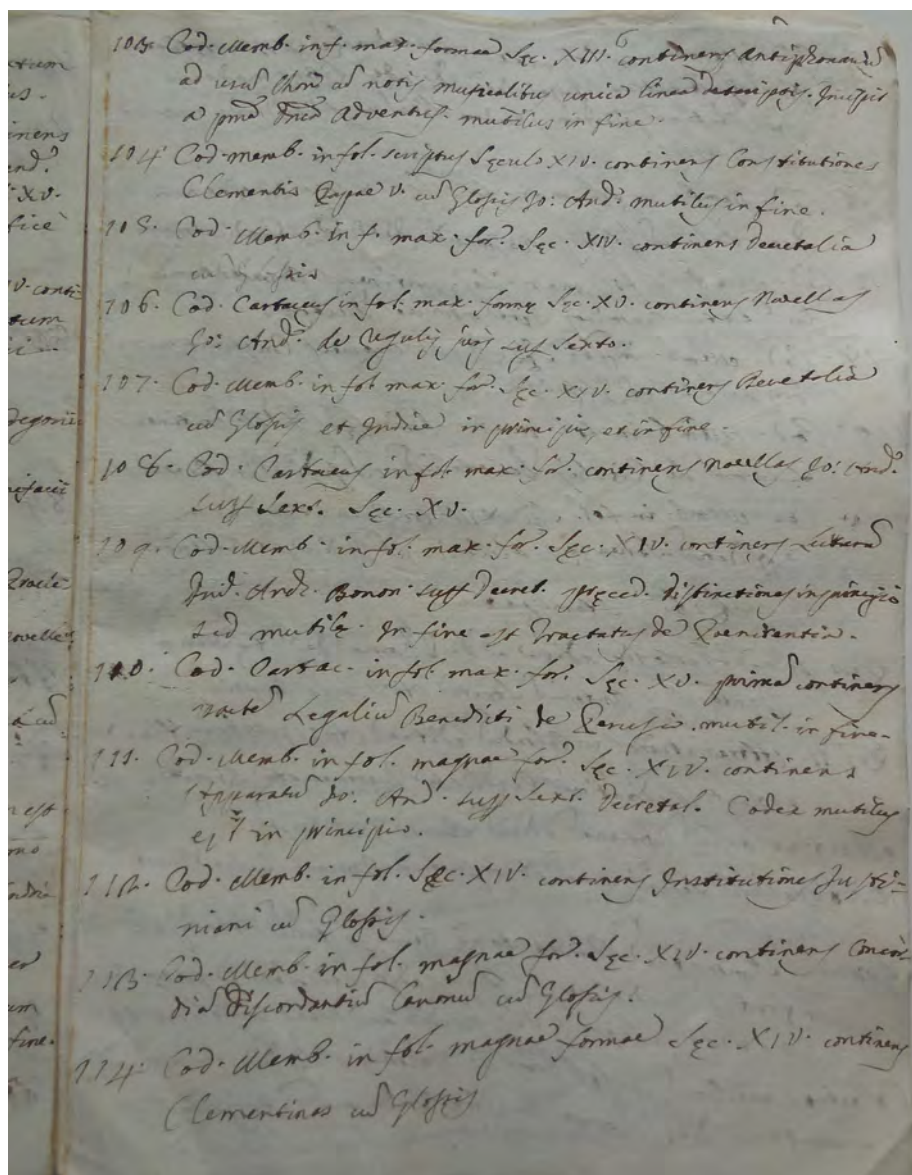 103. Cod. Memb. in f. max. formae Sęc. XIII. continens Antiphonariū
ad usū Chori cū notis musicalibus unica linea descriptis. Incipit
a pmâ Dnicâ Adventus. mutilus in fine.
104. Cod. memb. in fol. scriptus Sęculo XIV. continens Constitutiones
Clementis Papae V. cū Glossis Jo: And: mutilus in fine.
105. Cod. Memb. in f. max. for. Sęc. XIV. continens Decretalia
cū Glossis
106. Cod. Cartaceus in fol. max. formę Sęc. XV. continens Novellas
Jo: And: de Regulis juris sup Sexto.
107. Cod. Memb. in fol. max. for. Sęc. XIV. continens Decretalia
cū Glossis et Indice in principio, et in fine.
108. Cod. Cartaceus in fol. max. for. continens Novellas Jo: And:
sup Sext. Sęc. XV.
109. Cod. Memb. in fol. max. for. Sęc. XIV. continens Lecturā
And. Bonon. sup Decret. pręced. distinctiones in principio
sed mutilę. In fine est Tractatus de Poenitentia.
110. Cod. Cartac. in fol. max. for. Sęc. XV. primā continens
partē Legaliū Benedicti de Perusio. mutil. in fine.
111. Cod. Memb. in fol. magnae for. Sęc. XIV. continens
Apparatū Jo: And. sup Sext. Decretal. Codex mutilus
est in principio.
112. Cod. Memb. in fol. Sęc. XIV. continens Institutiones Justi-
niani cū Glossis.
113. Cod. Memb. in fol. magnae for. Sęc. XIV. continens Concor-
diā Discordantiū Canonū cū Glossis.
114. Cod. Memb. in fol. magnae formae Sęc. XIV. continens
Clementinas cū Glossis